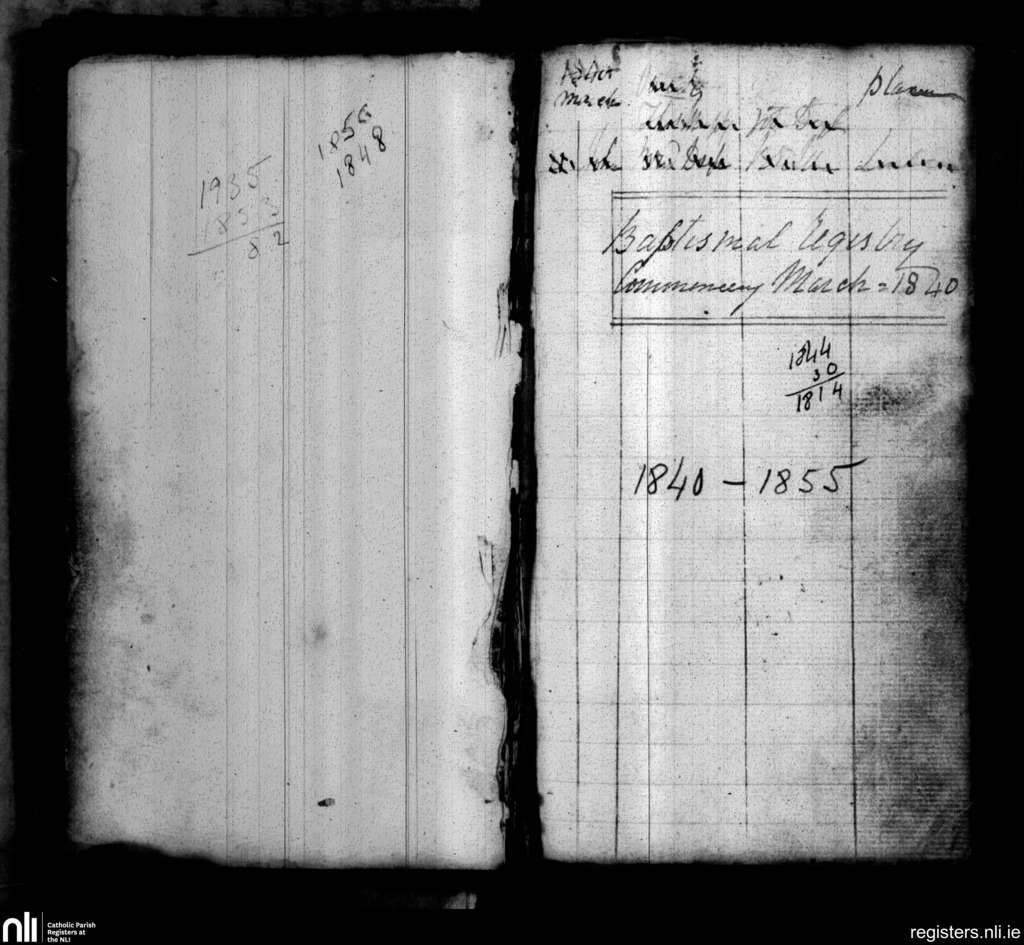 1856
1848
1935
1853
82
March
place
Baptismal Registry
Commencing March = 1840
1844
30
1814
1840 - 1855
nli
Catholic Parish
Registers at
the NLI
registers.nli.ie